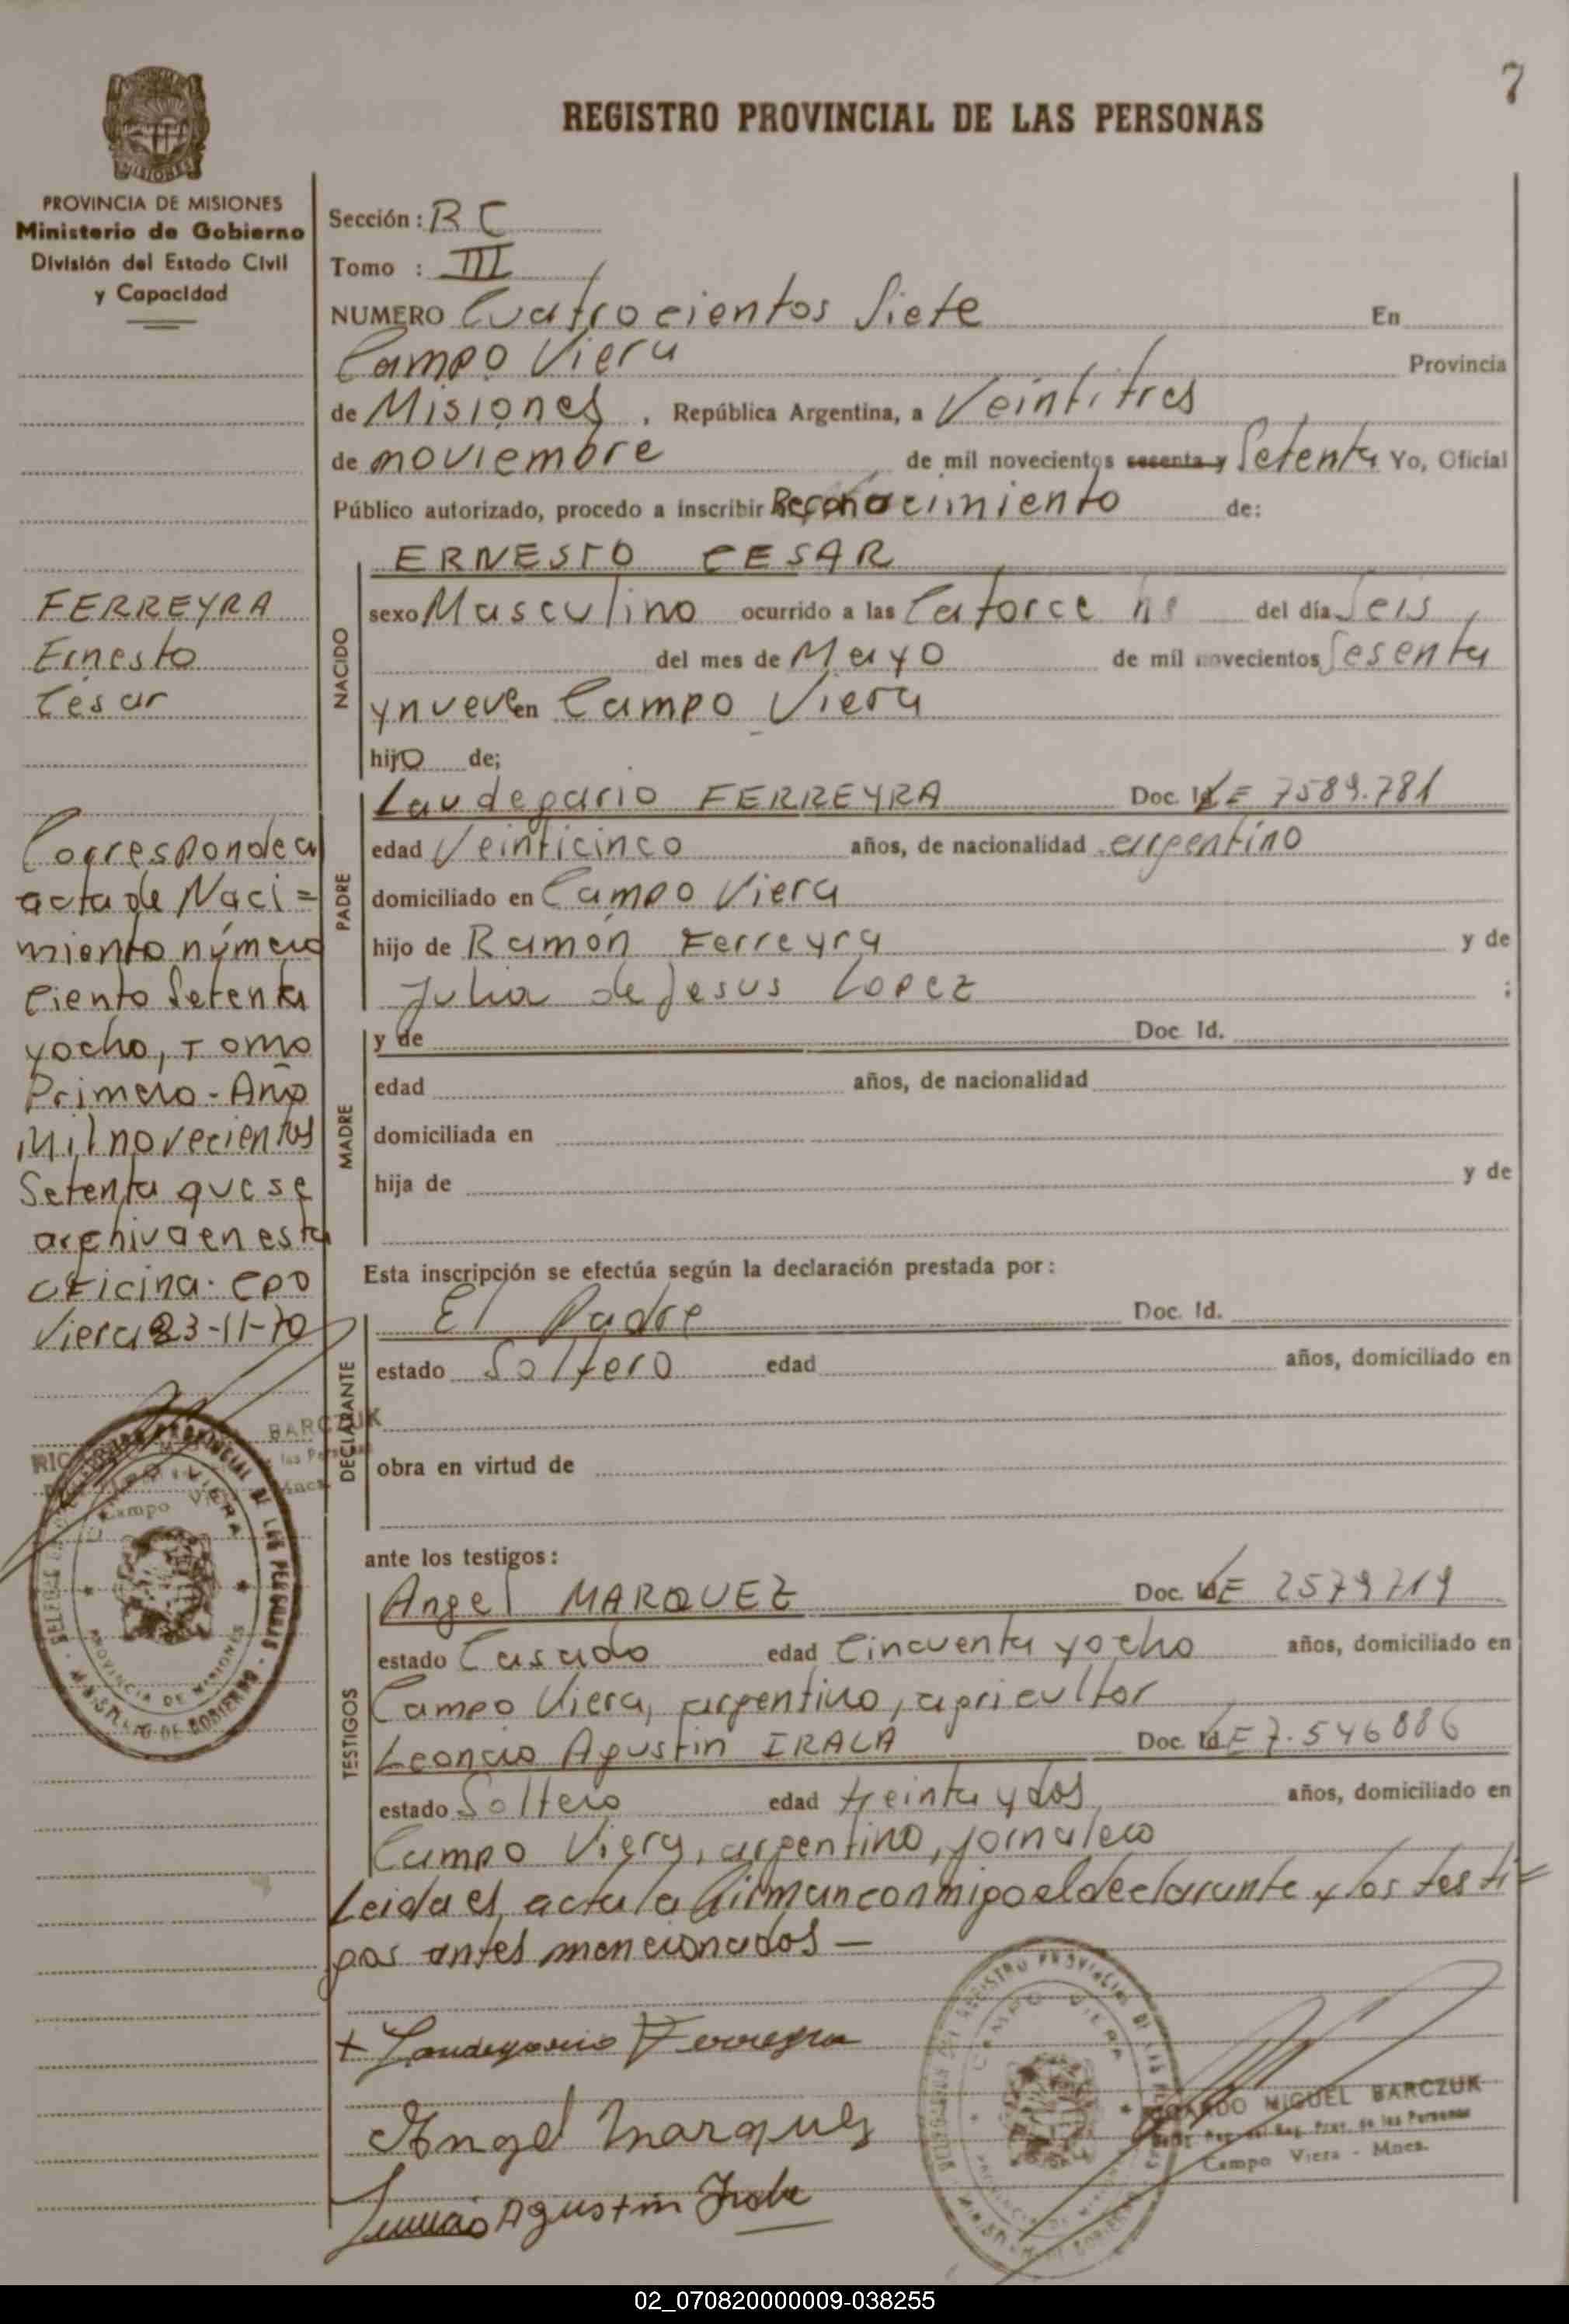 7
REGISTRO PROVINCIAL DE LAS PERSONAS
MISIONES
PROVINCIA DE MISIONES
Ministerio de Gobierno
División del Estado Civil
y Capacidad
FERREYRA
Ernesto
Cesar
Corresponde a
acta de Naci=
miento número
ciento Setenta
yocho, Tomo
Primero - Año
Mil novecientos
Setenta que se
archiva en esta
oficina. Cpo
Viera 23-11-70
BARCZUK
Campo Viera
CAMPO VIERA
PROVINCIA DE MISIONES
MINISTERIO DE GOBIERNO
Sección: RC
Tomo : III
NUMERO Cuatrocientos Siete En
Campo Viera Provincia
de Misiones, República Argentina, a Veintitres
de noviembre de mil novecientos sesenta y Setenta Yo, Oficial
Público autorizado, procedo a inscribir Reconocimiento de:
NACIDO
ERNESTO CESAR
sexo Masculino ocurrido a las Catorce hs del día Seis
del mes de Mayo de mil novecientos Sesenta
y nueve en Campo Viera
hijo de;
PADRE
Laudegario FERREYRA Doc. Id LE 7589.781
edad Veinticinco años, de nacionalidad argentino
domiciliado en Campo Viera
hijo de Ramón Ferreyra y de
Julia de Jesus Lopez ;
MADRE
y de Doc. Id.
edad años, de nacionalidad
domiciliada en
hija de y de
Esta inscripción se efectúa según la declaración prestada por:
DECLARANTE
El Padre Doc. Id.
estado Soltero edad años, domiciliado en
obra en virtud de
ante los testigos:
TESTIGOS
Angel MARQUEZ Doc. Id LE 2579719
estado Casado edad Cincuenta yocho años, domiciliado en
Campo Viera, argentino, agricultor
Leoncio Agustin IRALA Doc. Id LE 7.546886
estado Soltero edad treinta y dos años, domiciliado en
Campo Viera, argentino, jornalero
Leida el acta la firman conmigo el declarante y los testi=
gos antes mencionados —
+ Laudegario Ferreyra
Angel Marquez
Leoncio Agustin Irala
RICARDO MIGUEL BARCZUK
Reg. Prov. de las Personas
Campo Viera - Mnes.
02_070820000009-038255